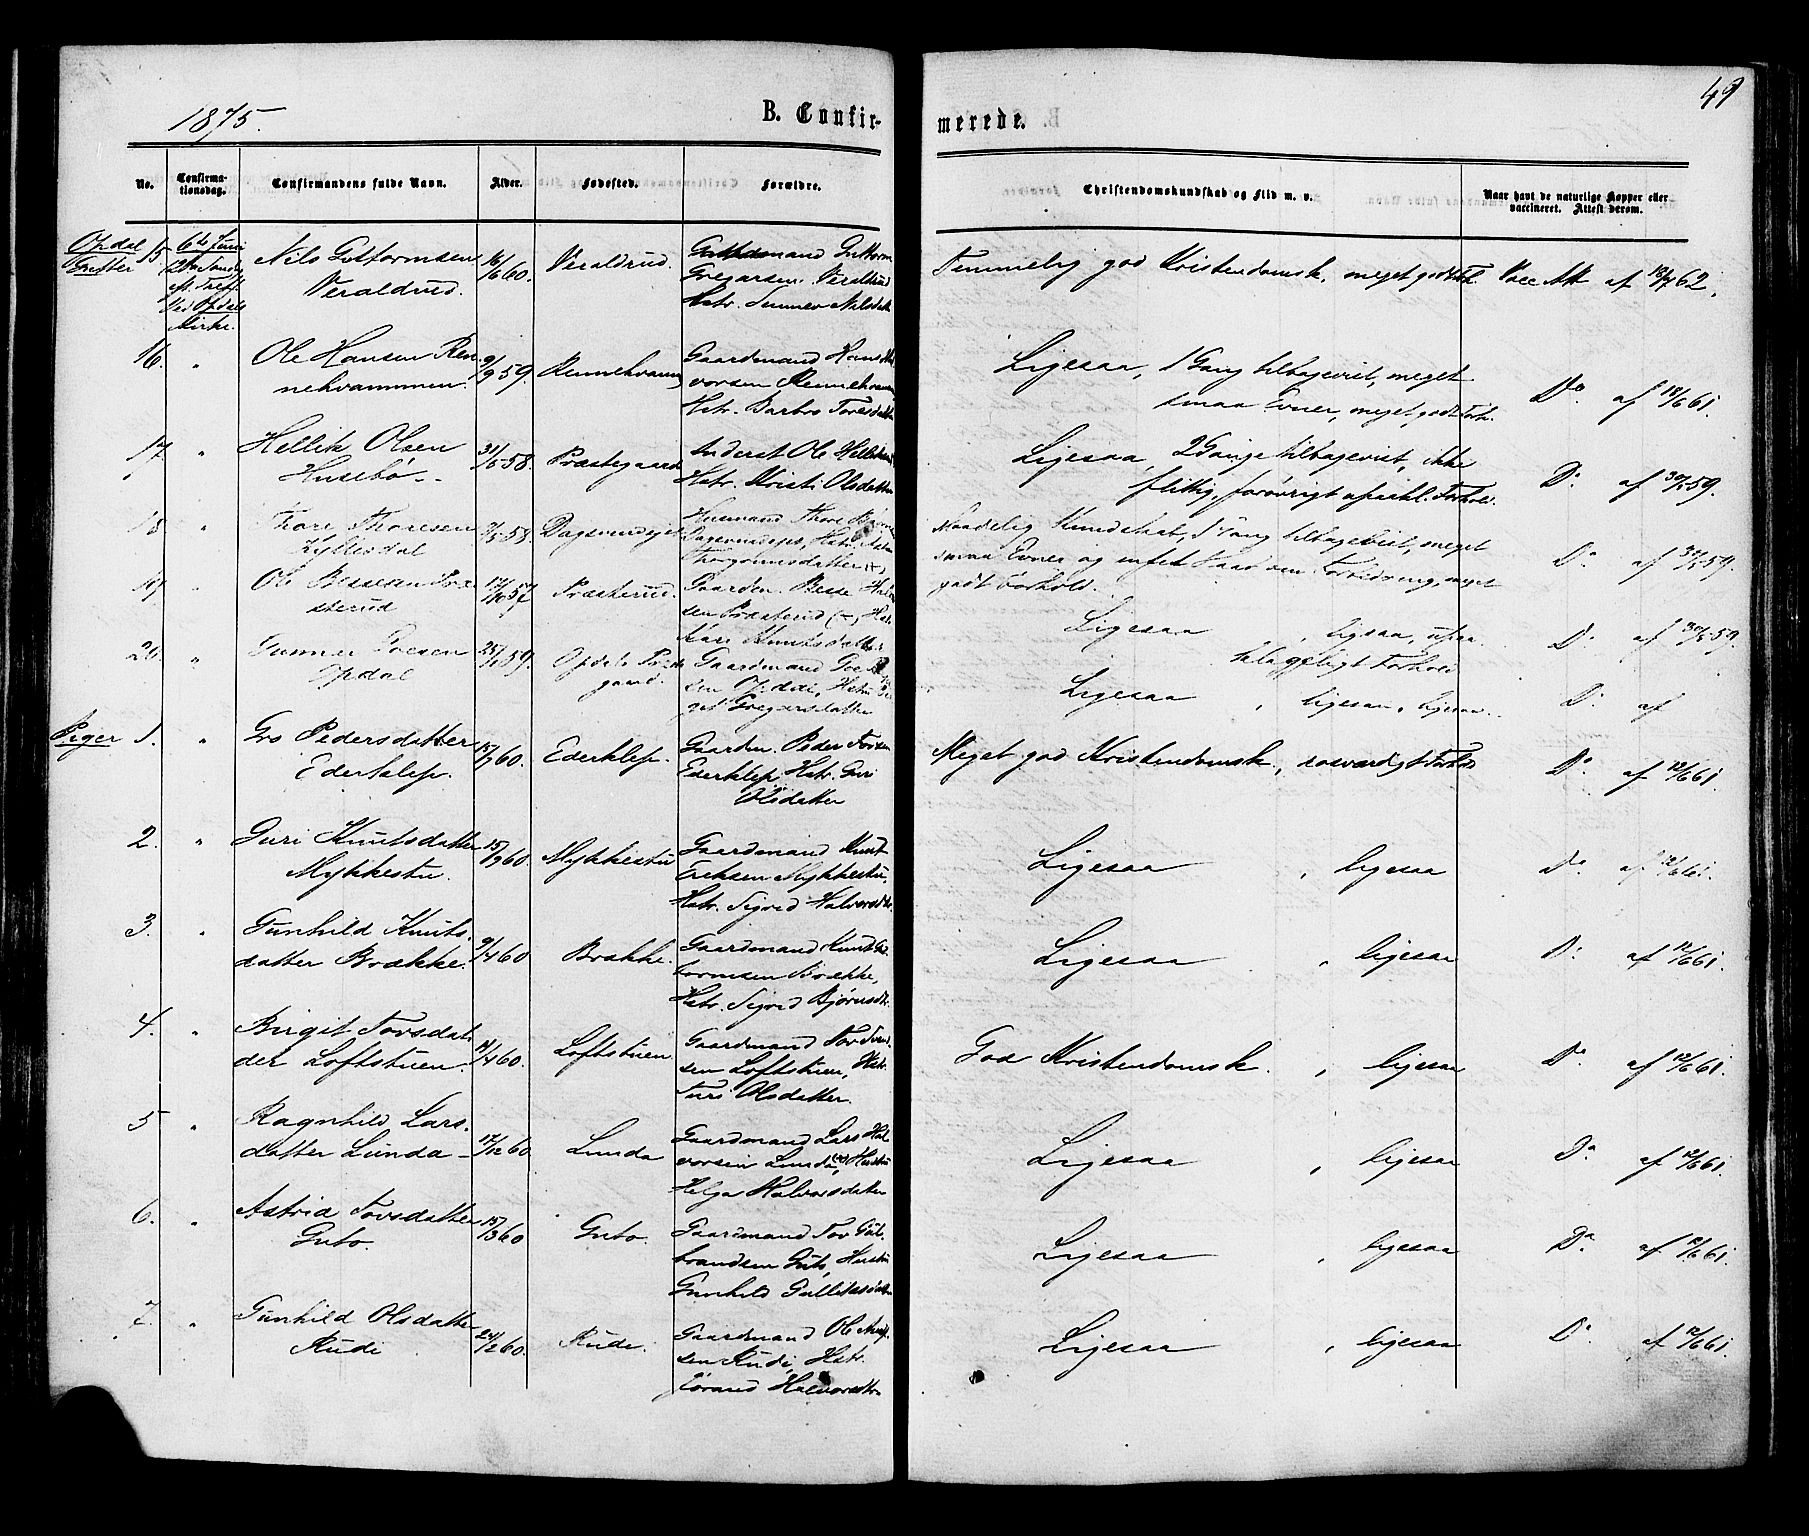 1875.
B. Confir-
merede.
49
No.
Confirma-
tionsdag.
Confirmandens fulde Navn.
Alder.
Fødested.
Forældre.
Christendomskundskab og Flid m. v.
Naar havt de naturlige Kopper eller
vaccineret. Attest derom.
Opdal
15
6te Juni
Ved Opdals
Kirke.
Nils Guttormsen
Veraldrud.
16/6 60.
Veraldrud.
Gaardmand Guttorm
Gregarsen Veraldrud
Hstr. Gunner Nilsdatt
Temmelig god Kristendomsk. meget godt
Vacc. Att. af 62.
16.
"
Ole Hansen Ren-
nehvammen.
9/9 59.
Rennehvamm
Gaardmand Hans Hal
vorsen Rennehvamm
Hstr. Barbro Toresdatte
Ligesaa, 1 Gang tilbagevist, meget
smaa Evner, meget godt Forh.
Do. af 18/6 61.
17.
"
Hellik Olsen
Husebø
31/5 58.
Præstegaard
Inderst Ole Helliksen
Hstr. Kristi Olsdatter
Ligesaa, 2 Gange tilbagevist, ikke
flittig, forøvrigt upaakl. Forhold.
Do. af 30/5 59.
18
"
Thore Thoresen
58.
Husmand Thore
Kundskab, 1 Gang tilbagevist, meget
smaa Evner og
godt Forhold.
Do. af 59.
19
"
Ole Bessesen Præ-
sterud
17/10 57
Præsterud.
Gaardm. Besse Halvor
sen Præsterud (+), Hstr
Kari Knutsdatter
Ligesaa, ligesaa, upaa
klageligt Forhold
Do. af 59.
20.
"
Gunner
Opdal
59.
Opdals Præste
gaard.
Gaardmand
sen Opdal, Hstr. Bir
git Gregarsdatter
Ligesaa, ligesaa, ligesaa.
Do. af
Piger 1.
"
Gro Pedersdatter
Ederklep.
15/7 60.
Ederklep.
Gaardm. Peder Torsen
Ederklep Hstr. Guri
Olsdatter
Meget god Kristendomsk., rosværdigt Forhold
Do. af 12/6 61.
2.
"
Guri Knutsdatter
Mykkestu.
15/9 60.
Mykkestu
Gaardmand Knut
Eriksen Mykkestu,
Hstr. Sigrid Halvorsdtr.
Ligesaa, ligesaa
Do. af 12/6 61.
3.
"
Gunhild Knuts-
datter Brække.
9/4 60
Brække.
Gaardmand Knut Gut
tormsen Brække,
Hstr. Sigrid Bjørnsdtr.
Ligesaa, ligesaa
Do. af 12/6 61.
4.
"
Birgit Tovsdat-
der Loftstuen.
14/4 60.
Loftstuen
Gaardmand Tov Svend
sen Loftstuen, Hstr
Turi Olsdatter.
God Kristendomsk., ligesaa
Do. af 12/6 61.
5
"
Ragnhild Lars-
datter Lunda
17/12 60
Lunda
Gaardmand Lars Hal
vorsen Lunda (+), Hustru
Helga Halvorsdatter
Ligesaa, ligesaa
Do. af 12/6 61.
6.
"
Astrid Tovsdatter
Guto.
15/3 60
Guto.
Gaardmand Tov Gul
brandsen Guto, Hustru
Gunhild Gulliksdatter
Ligesaa, ligesaa
Do. af 12/6 61.
7.
"
Gunhild Olsdatter
Rudi
24/2 60.
Rudi.
Gaardmand Ole
sen Rudi, Hstr.
Jørand Halvorsdtr.
Ligesaa, ligesaa
Do. af 12/6 61.